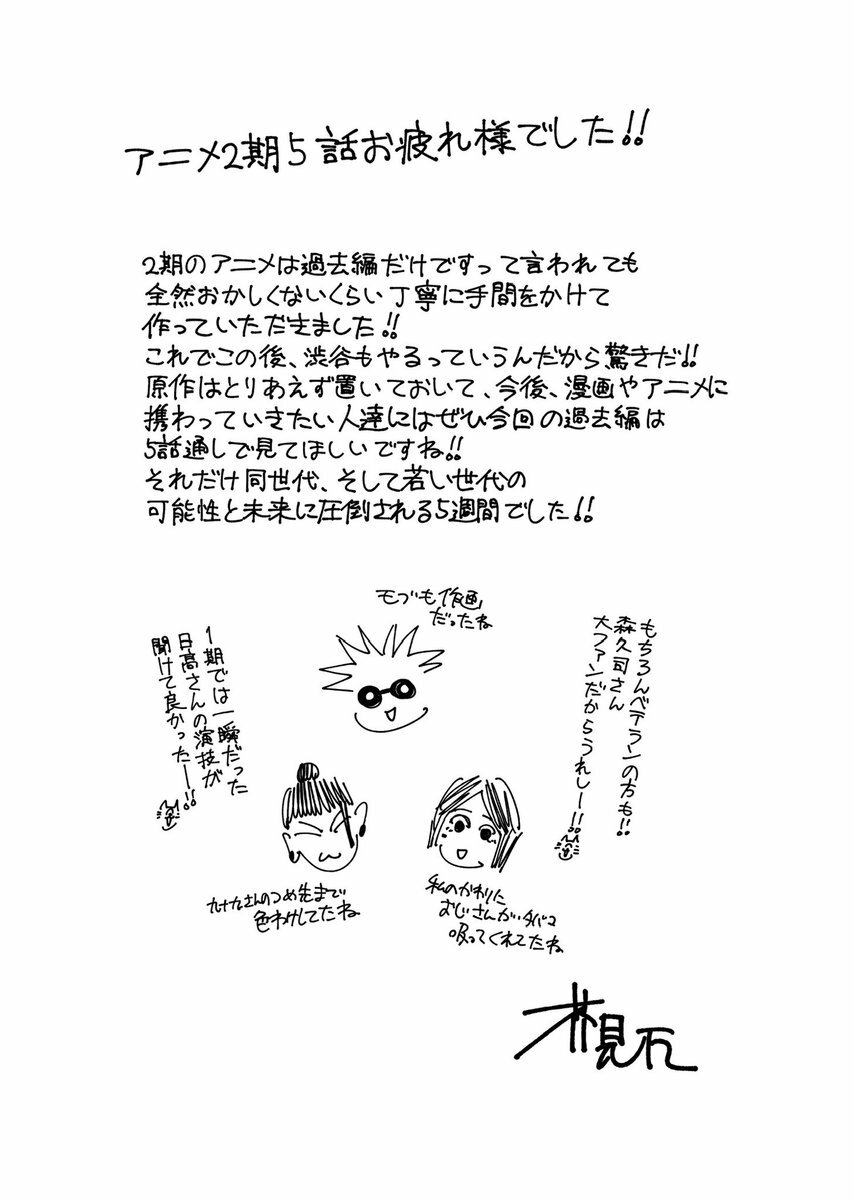 アニメ2期5話お疲れ様でした!!
2期のアニメは過去編だけですって言われても
全然おかしくないくらい丁寧に手間をかけて
作っていただきました!!
これでこの後、渋谷もやるっていうんだから驚きだ!!
原作はとりあえず置いておいて、今後、漫画やアニメに
携わっていきたい人達にはぜひ今回の過去編は
5話通しで見てほしいですね!!
それだけ同世代、そして若い世代の
可能性と未来に圧倒される5週間でした!!
モブも作画
だったね
もちろんベテランの方も!!
森久司さん
大ファンだからうれしー!!
1期では一瞬だった
日高さんの演技が
聞けて良かったー!!
九十九さんのつめ先まで
色わけしてたね
私のかわりに
おじさんがタバコ
吸ってくれてたね
芥見下々